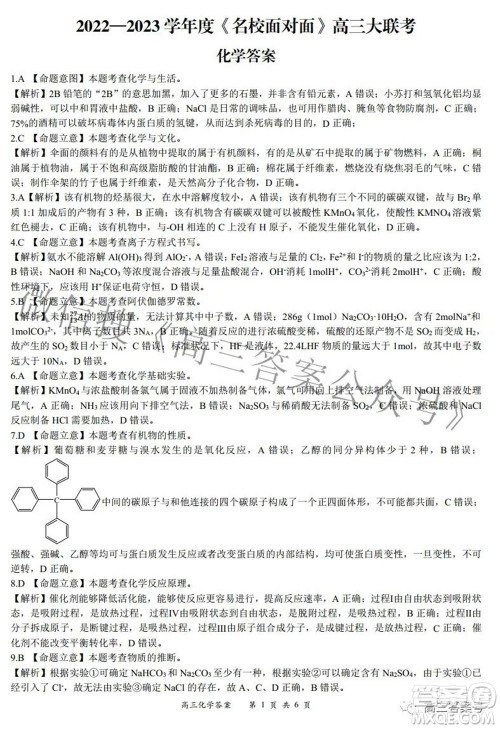 2022—2023学年度《名校面对面》高三大联考
化学答案
1.A 【命题意图】本题考查化学与生活。
【解析】2B 铅笔的“2B”的意思加黑，加入了更多的石墨，并非含有铅，A 错误；小苏打和氢氧化铝均显
弱碱性，可以中和胃液中盐酸，B 正确；NaCl 是日常的调味品，也可用作腊肉、腌鱼等食物防腐剂，C 正确；
75%的酒精可以破坏病毒体内蛋白质的氢键，从而达到杀死病毒的目的，D 正确；
2.C 【命题立意】本题考查化学与文化。
【解析】伞面的颜料有的是从植物中提取的属于有机颜料，有的是从矿石中提取的属于矿物燃料，A 正确；桐
油属于植物油，属于不饱和高级脂肪酸的甘油酯，B 正确；棉花属于纤维素，燃烧没有烧焦羽毛的气味，C 错
误；制作伞架的竹子也属于纤维素，是天然高分子化合物，D 正确；
3.A 【解析】该有机物烃基很大，在水中溶解度较小，A 错误；该有机物有三个不同的碳碳双键，故与 Br₂ 单
质 1:1 加成后的产物有 3 种，B 正确；该有机物含有碳碳双键可以被酸性 KMnO₄ 氧化，使酸性 KMnO₄ 溶液紫
红色褪去，C 正确；该有机物中，与-OH 相连的 C 上没有 H 原子，不能发生催化氧化，D 正确；
4.C 【命题立意】本题考查离子方程式书写。
【解析】氨水不能溶解 Al(OH)₃ 得到 AlO₂⁻，A 错误；FeI₂ 溶液与过量的 Cl₂，Fe²⁺和 I⁻的物质的量比应该为 1:2，
B 错误；NaOH 和 Na₂CO₃ 等浓度混合溶液与足量乙酸溶液混合，OH⁻消耗 1molH⁺，CO₃²⁻消耗 2molH⁺，C 正确；酸
性环境下，应该用 H⁺保证电荷守恒，D 错误；
5.B 【命题立意】本题考查阿伏伽德罗常数。
的物质的量，无法计算其中中子数，A 错误；286g（1mol）Na₂CO₃·10H₂O，含有 2molNa⁺和
1molCO₃²⁻，其中离子数目共 3Nᴀ，B 正确；Cu 与浓硫酸发生反应，硫酸的还原产物不是 SO₂ 而变成 H₂，
故产生的 SO₂ 数目小于 Nᴀ，C 错误；标准状况下，HF 是液体，22.4LHF 物质的量远大于 1mol，故其中电子数
远大于 10Nᴀ，D 错误；
6.A 【命题立意】本题考查化学基础实验。
【解析】KMnO₄ 与浓盐酸制备氯气属于固液不加热制备气体，氯气可用向上排空气法制备，用 NaOH 溶液处理
尾气，A 正确；NH₃ 应该用向下排空气法，B 错误；Na₂SO₃ 与稀硝酸无法生成 SO₂，C 错误；浓硫酸和 NaCl
反应制备 HCl 需要加热，D 错误；
7.D 【命题立意】本题考查有机物的性质。
【解析】葡萄糖和麦芽糖与溴水发生的是氧化反应，A 错误；乙醇的同分异构体少于 2 种，B 错误；
C
中间的碳原子与和他连接的四个碳原子构成了一个正四面体形，不可能都共面，C 错误；
强酸、强碱、乙醇等均可与蛋白质发生反应或者改变蛋白质的内部结构，均可使蛋白质变性，一旦变性，不可
逆，D 正确；
8.D 【命题立意】本题考查化学反应原理。
【解析】催化剂能够降低活化能，能够使反应更容易进行，提高反应速率，A 正确；过程Ⅰ是由自由态到吸附
状态，是吸附过程，是放热过程，过程Ⅳ由吸附状态到自由态，是脱附过程，是吸热过程，B 正确；过程Ⅱ由分
子拆成原子，是断键过程，是吸热过程，过程Ⅲ由原子组合成分子，是成键过程，是放热过程，C 正确；催
化剂不能改变平衡转化率，D 错误；
9.B 【命题立意】本题考查物质的推断。
【解析】根据实验①可确定 NaHCO₃ 和 Na₂CO₃ 至少有一种，根据实验②可以确定一定含有 Na₂SO₄，由于①已
经引入了 Cl⁻，故无法由实验③确定 NaCl 的存在，故 A 正确，B 错误；
高三化学答案 第 1 页 共 6 页
微信搜《高三答案公众号》
高三答案号